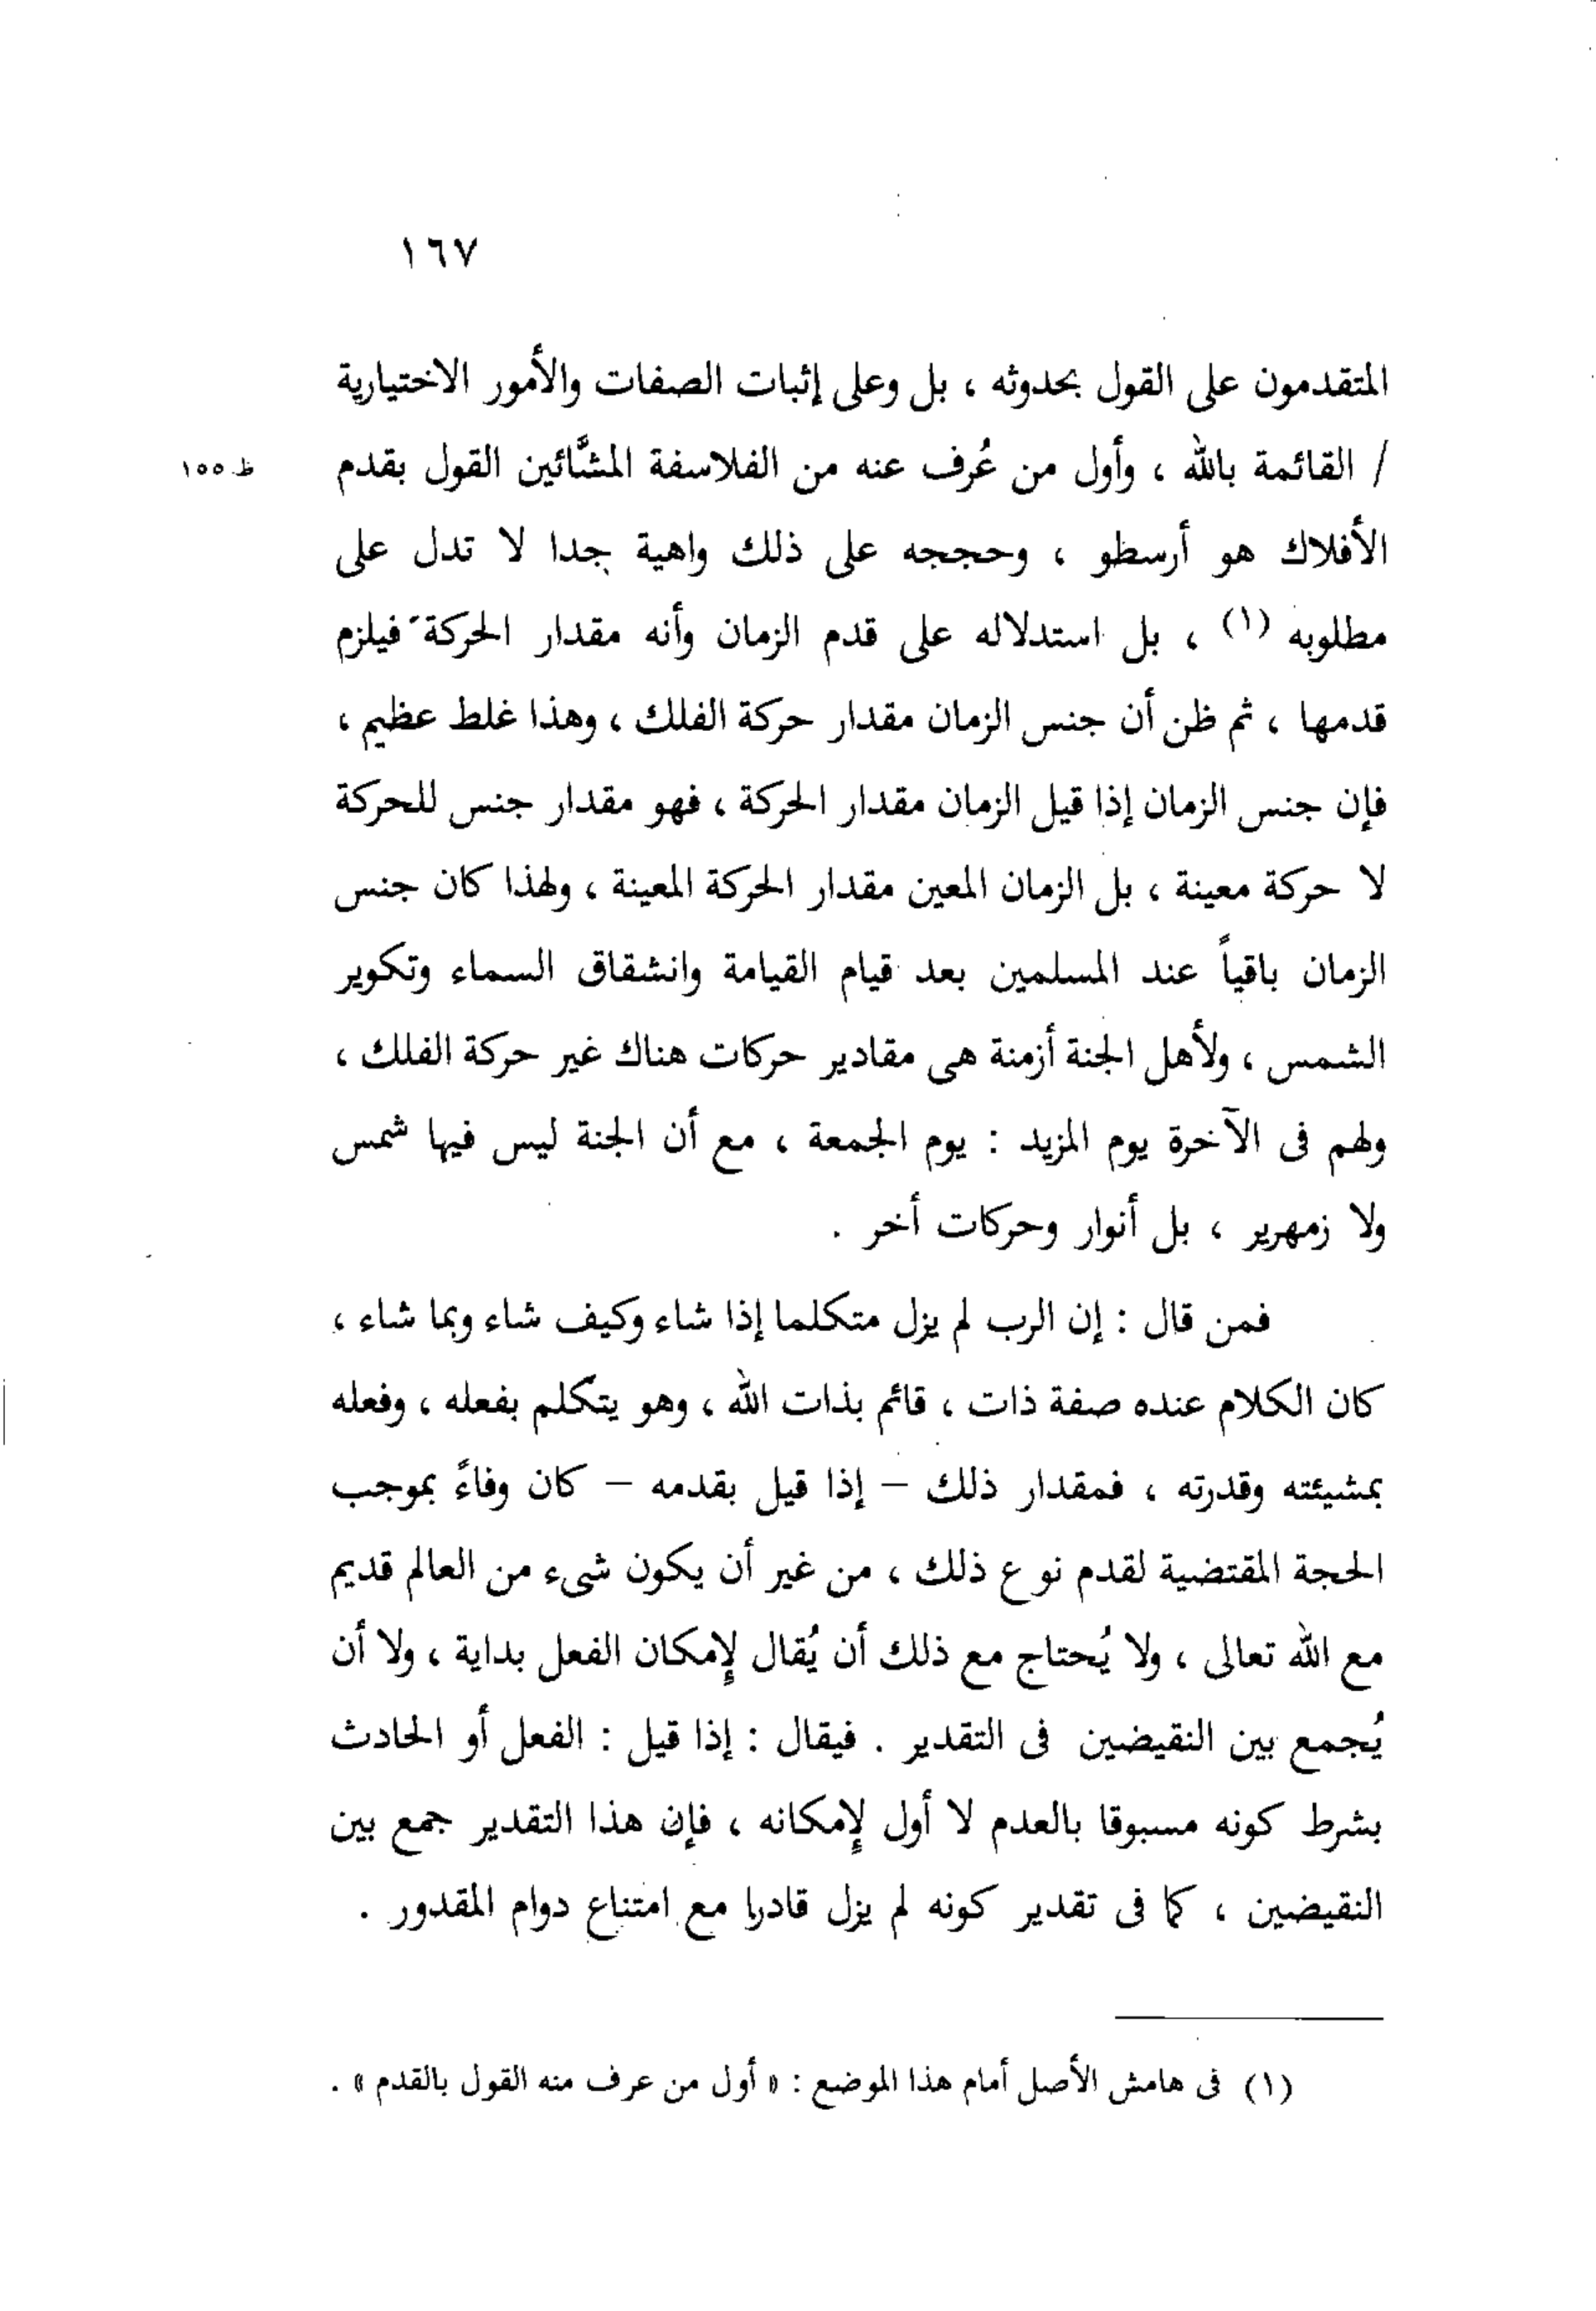 ١٦٧
المتقدمون على القول بحدوثه ، بل وعلى إثبات الصفات والأمور الاختيارية
/ القائمة بالله ، وأول من عُرف عنه من الفلاسفة المشَّائين القول بقدم ظ ١٥٥
الأفلاك هو أرسطو ، وحججه على ذلك واهية جدا لا تدل على
مطلوبه (١) ، بل استدلاله على قدم الزمان وأنه مقدار الحركة فيلزم
قدمها ، ثم ظن أن جنس الزمان مقدار حركة الفلك ، وهذا غلط عظيم ،
فإن جنس الزمان إذا قيل الزمان مقدار الحركة ، فهو مقدار جنس للحركة
لا حركة معينة ، بل الزمان المعين مقدار الحركة المعينة ، ولهذا كان جنس
الزمان باقياً عند المسلمين بعد قيام القيامة وانشقاق السماء وتكوير
الشمس ، ولأهل الجنة أزمنة هى مقادير حركات هناك غير حركة الفلك ،
ولهم فى الآخرة يوم المزيد : يوم الجمعة ، مع أن الجنة ليس فيها شمس
ولا زمهرير ، بل أنوار وحركات أخر .
فمن قال : إن الرب لم يزل متكلما إذا شاء وكيف شاء وبما شاء ،
كان الكلام عنده صفة ذات ، قائم بذات الله ، وهو يتكلم بفعله ، وفعله
بمشيئته وقدرته ، فمقدار ذلك – إذا قيل بقدمه – كان وفاءً بموجب
الحجة المقتضية لقدم نوع ذلك ، من غير أن يكون شىء من العالم قديم
مع الله تعالى ، ولا يُحتاج مع ذلك أن يُقال لإِمكان الفعل بداية ، ولا أن
يُجمع بين النقيضين فى التقدير . فيقال : إذا قيل : الفعل أو الحادث
بشرط كونه مسبوقا بالعدم لا أول لإِمكانه ، فإن هذا التقدير جمع بين
النقيضين ، كما فى تقدير كونه لم يزل قادرا مع امتناع دوام المقدور .
(١) فى هامش الأصل أمام هذا الموضع : « أول من عرف منه القول بالقدم » .